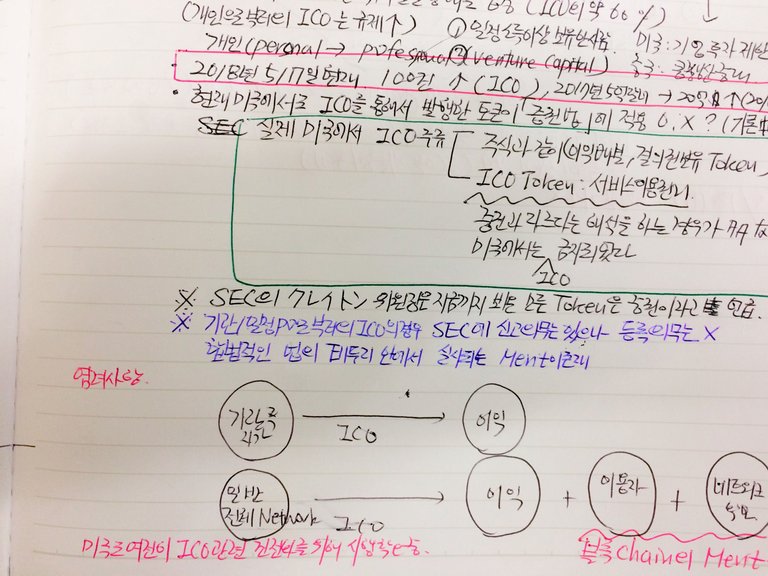 (ICO의 약 60%)
(개인으로부터의 ICO는 규제↑) ① 일정소득이상 보유한사람. 미국: 기업투자제한
개인(personal → professional ② venture capital)
2018년 5/17일 현재. 100건 ↑ (ICO), 2017년 5억달러 → 20억$↑
• 현재 미국에서도 ICO를 통해서 발행한 토큰이 "증권법"의 적용 O, X?
SEC 실제 미국에서 ICO 주류
주식과 같이(이익배분, 결의권보유 Token
ICO Token: 서비스이용권리.
증권과 다르다는 해석을 하는 경우가
미국에서는 금지되었다
ICO
※ SEC의 クレイトン 위원장은 지금까지 본 모든 Token은 증권이라고 언급.
※ 기관/일정 부터의 ICO의경우 SEC에 신고의무는 있으나 등록의무는 X
합법적인 법의 테두리 안에서 실시되는 Merit 존재
염려사항.
기관투자 ICO 이익
일반 전체 Network ICO 이익 + 이용자 + 네트워크
미국도 여전히 ICO관련 시행착오중.
블록chain의 Merit